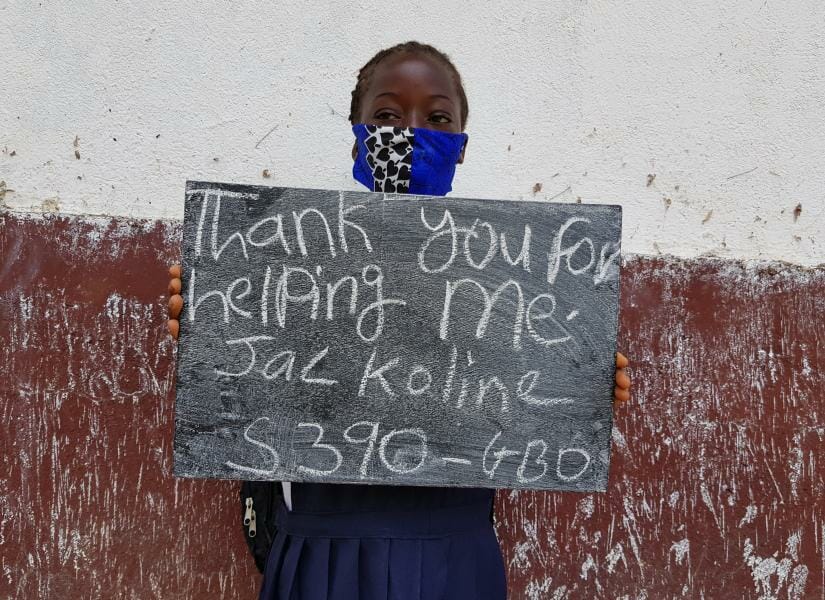 Thank you for
helping me.
Jackoline
S390-GBO